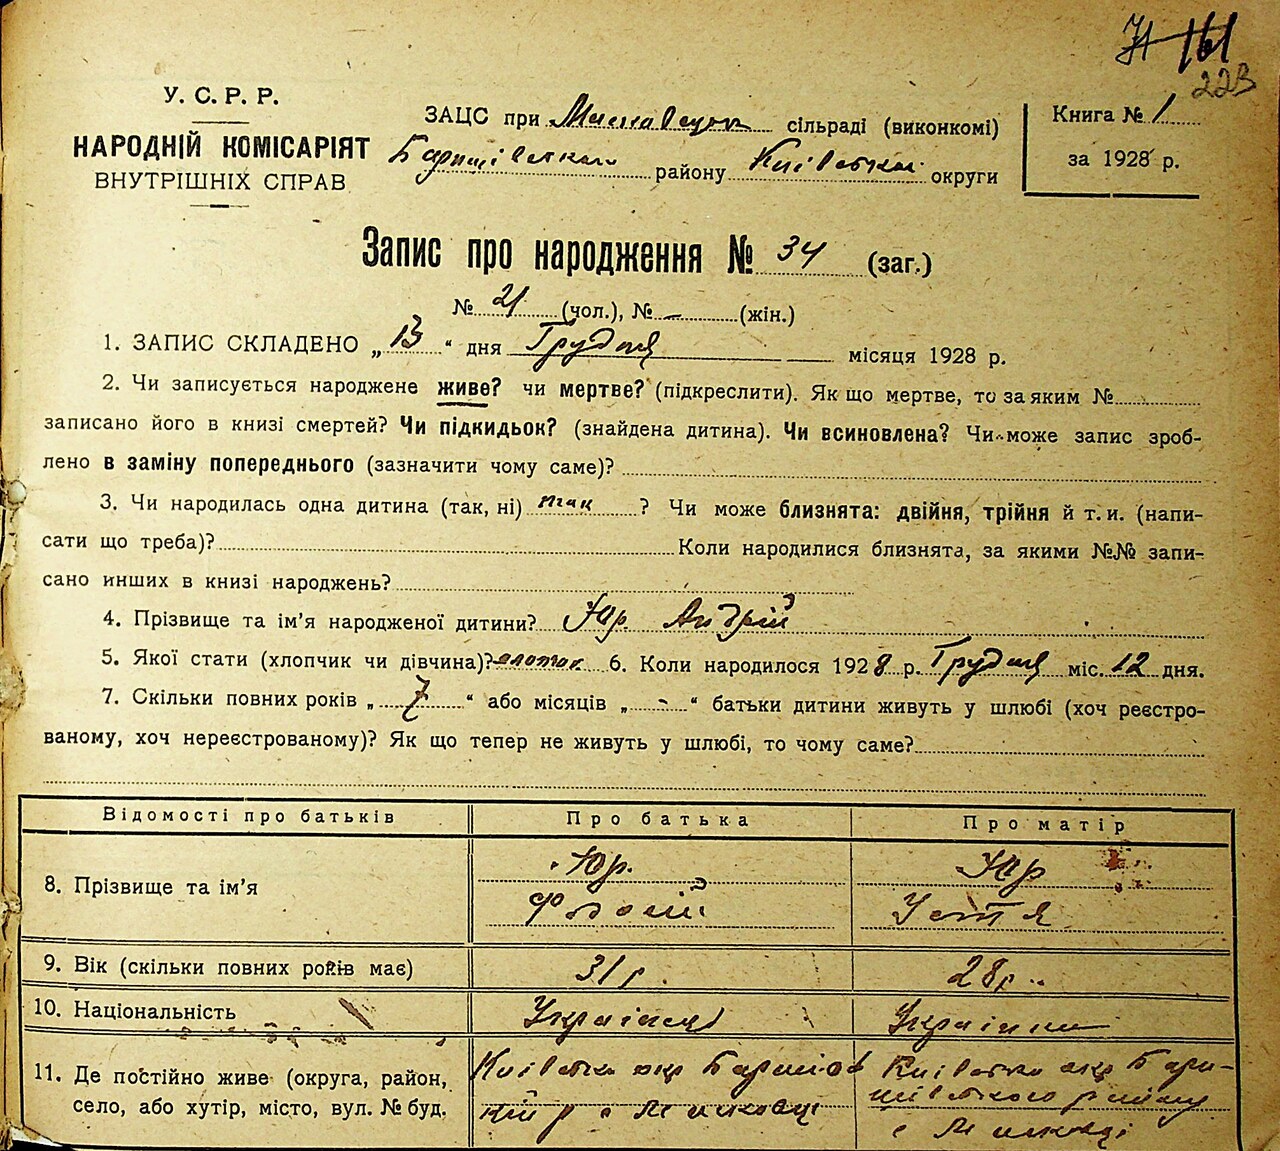 71 161
223
У. С. Р. Р.
НАРОДНІЙ КОМІСАРІЯТ
ВНУТРІШНІХ СПРАВ
ЗАЦС при сільраді (виконкомі)
Баришівського району Київської округи
Книга № 1
за 1928 р.
Запис про народження № 34 (заг.)
№ 21 (чол.), № – (жін.)
1. ЗАПИС СКЛАДЕНО „13“ дня Грудня місяця 1928 р.
2. Чи записується народжене живе? чи мертве? (підкреслити). Як що мертве, то за яким №
записано його в книзі смертей? Чи підкидьок? (знайдена дитина). Чи всиновлена? Чи може запис зроб-
лено в заміну попереднього (зазначити чому саме)?
3. Чи народилась одна дитина (так, ні) так ? Чи може близнята: двійня, трійня й т. и. (напи-
сати що треба)? Коли народилися близнята, за якими №№ запи-
сано инших в книзі народжень?
4. Прізвище та ім’я народженої дитини? Юр. Андрій
5. Якої стати (хлопчик чи дівчина)? 6. Коли народилося 1928 р. Грудня міс. 12 дня.
7. Скільки повних років „7“ або місяців „-“ батьки дитини живуть у шлюбі (хоч реєстро-
ваному, хоч нереєстрованому)? Як що тепер не живуть у шлюбі, то чому саме?
Відомості про батьків Про батька Про матір
8. Прізвище та ім’я Юр. Юр
Устя
9. Вік (скільки повних років має) 31 р. 28 р.
10. Національність Українець Українка
11. Де постійно живе (округа, район, Київська окр Баришів Київська окр Бари-
село, або хутір, місто, вул. № буд. кій р с шівського району
с